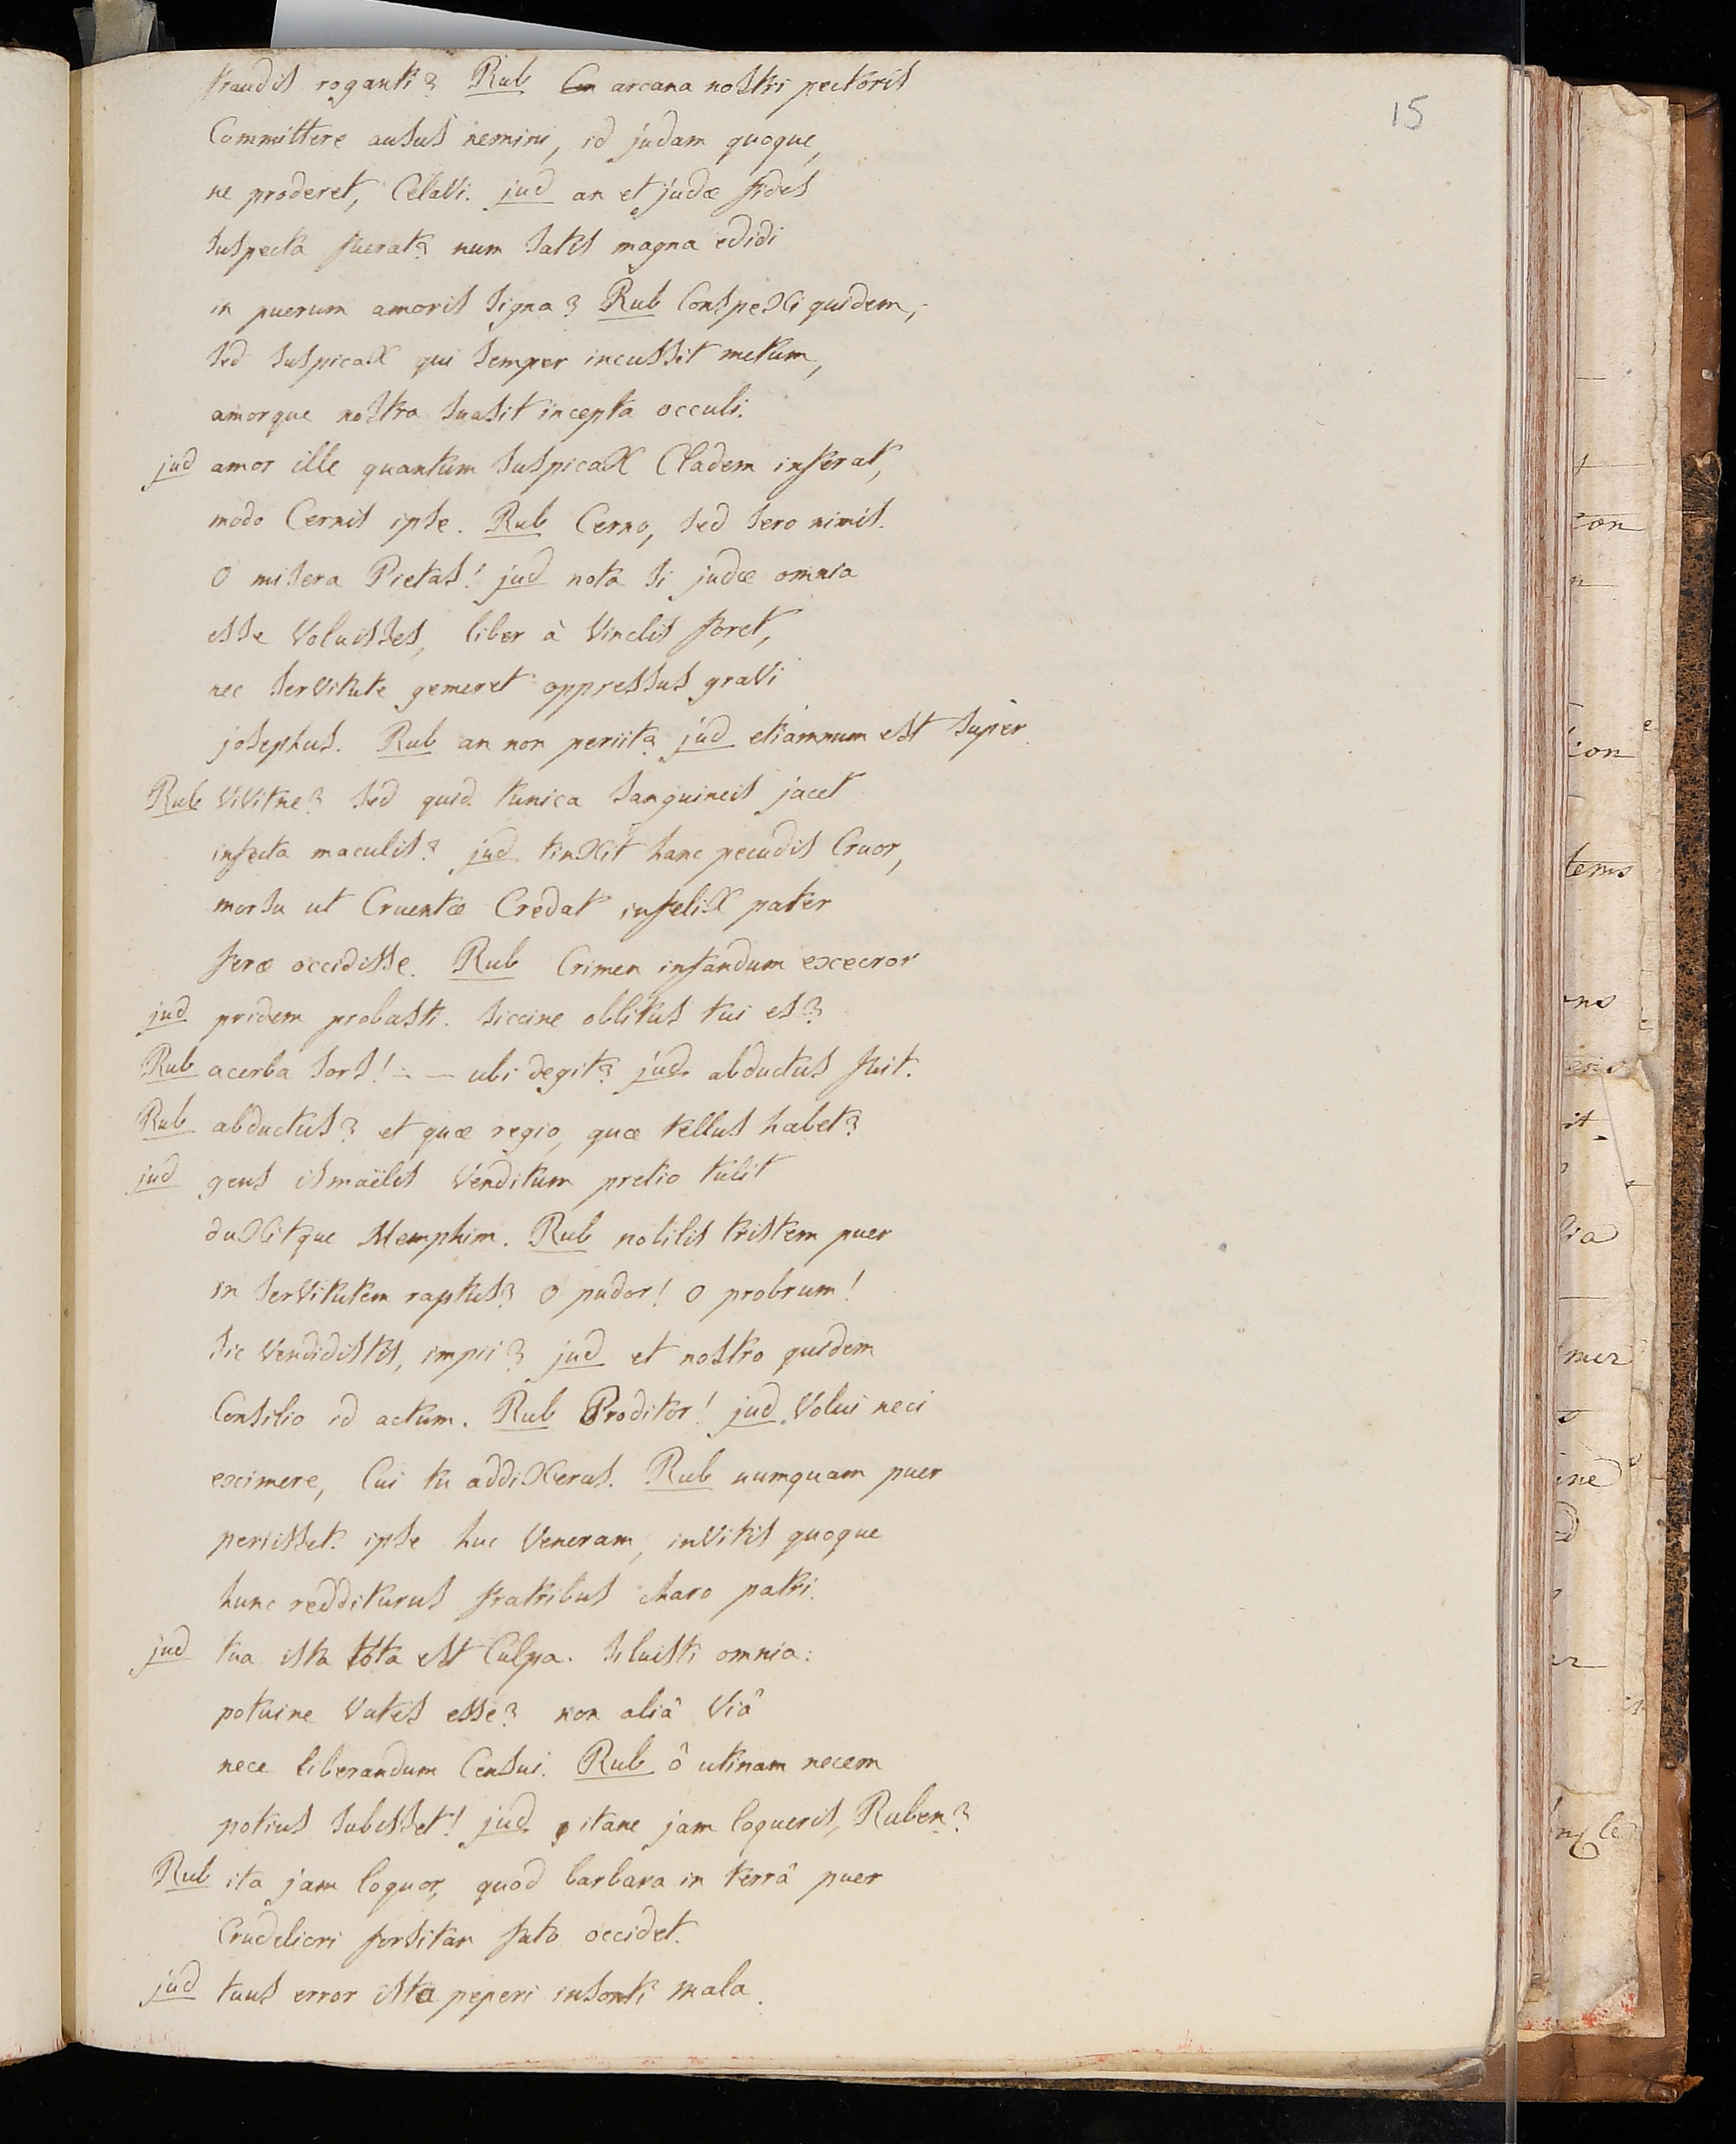 fraudis roganti? Rub arcana nostri pectoris
15
Committere ausus nemini, id judam quoque,
ne proderet, Celavi. jud an et judæ fides
suspecta fuerat? num satis magna edidi
in puerum amoris signa? Rub Conspexi quidem,
sed suspicax qui semper incussit metum,
amorque nostra suasit incepta occuli.
jud amor ille quantum suspicax Cladem inferat,
modo Cernis ipse. Rub Cerno, sed sero nimis.
O misera Pietas! jud nota si judæ omnia
esse Voluisses, liber à Vinclis foret,
nec servitute gemeret oppressus gravi
josephus. Rub an non periit? jud etiamnum est super
Rub Vivitne? sed quid tunica sanguineis jacet
infecta maculis? jud tinxit hanc pecudis Cruor,
morsu ut Cruentæ Credat infelix pater
feræ occidisse. Rub Crimen infandum execror
jud pridem probasti. siccine oblitus tui es?
Rub acerba sors! - — ubi degit? jud abductus fuit.
Rub abductus? et quæ regio, quæ tellus habet?
jud gens ismaëlis Venditum pretio tulit
duxitque Memphim. Rub nobilis tristem puer
in servitutem raptus? O pudor! O probrum!
sic Vendidistis, impii? jud et nostro quidem
Consilio id actum. Rub Proditor! jud Volui neci
eximere, Cui tu addixeras. Rub numquam puer
periisset. ipse huc Veneram, invitis quoque
hunc redditurus fratribus charo patri.
jud tua ista tota est Culpa. siluisti omnia:
potuine Vates esse? non aliâ Viâ
nece liberandum Censui. Rub ô utinam necem
potius subisset! jud itane jam loqueris, Ruben?
Rub ita jam loquor, quod barbara in terrâ puer
Crudeliori forsitan fato occidet.
jud tuus error ista peperi insonti mala.